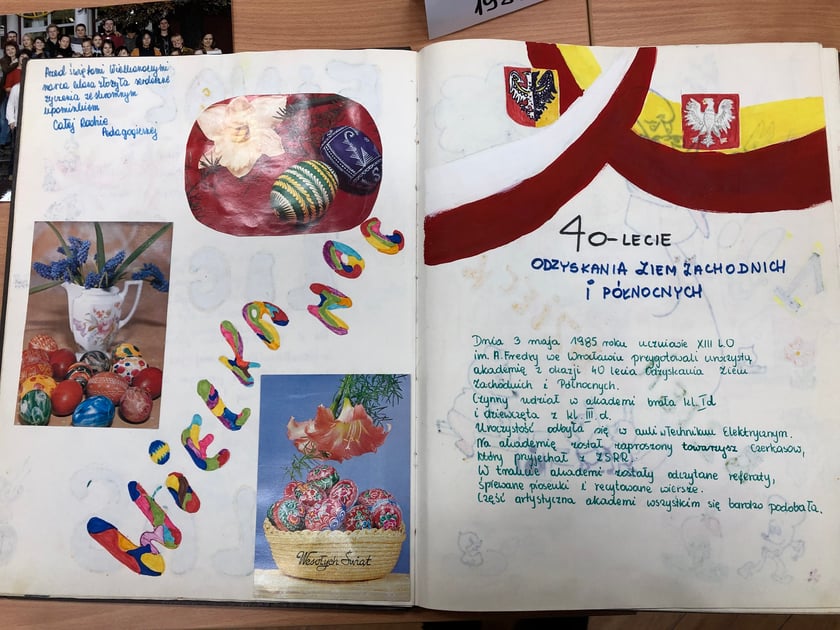 192
Przed świętami Wielkanocnymi
nasza klasa złożyła serdeczne
życzenia ze skromnym
upominkiem
Całej Radzie
Pedagogicznej
WIELKANOC
Wesołych Świąt
40-LECIE
ODZYSKANIA ZIEM ZACHODNICH
I PÓŁNOCNYCH
Dnia 3 maja 1985 roku uczniowie XIII LO
im. A. Fredry we Wrocławiu przygotowali uroczystą
akademię z okazji 40 lecia Odzyskania Ziem
Zachodnich i Północnych.
Czynny udział w akademi brała kl. I d
i dziewczęta z kl. III d.
Uroczystość odbyła się w auli w Technikum Elektrycznym.
Na akademię został zaproszony towarzysz Czerkasow,
który przyjechał z ZSRR.
W trakcie akademi zostały odczytane referaty,
śpiewane piosenki i recytowane wiersze.
Część artystyczna akademi wszystkim się bardzo podobała.